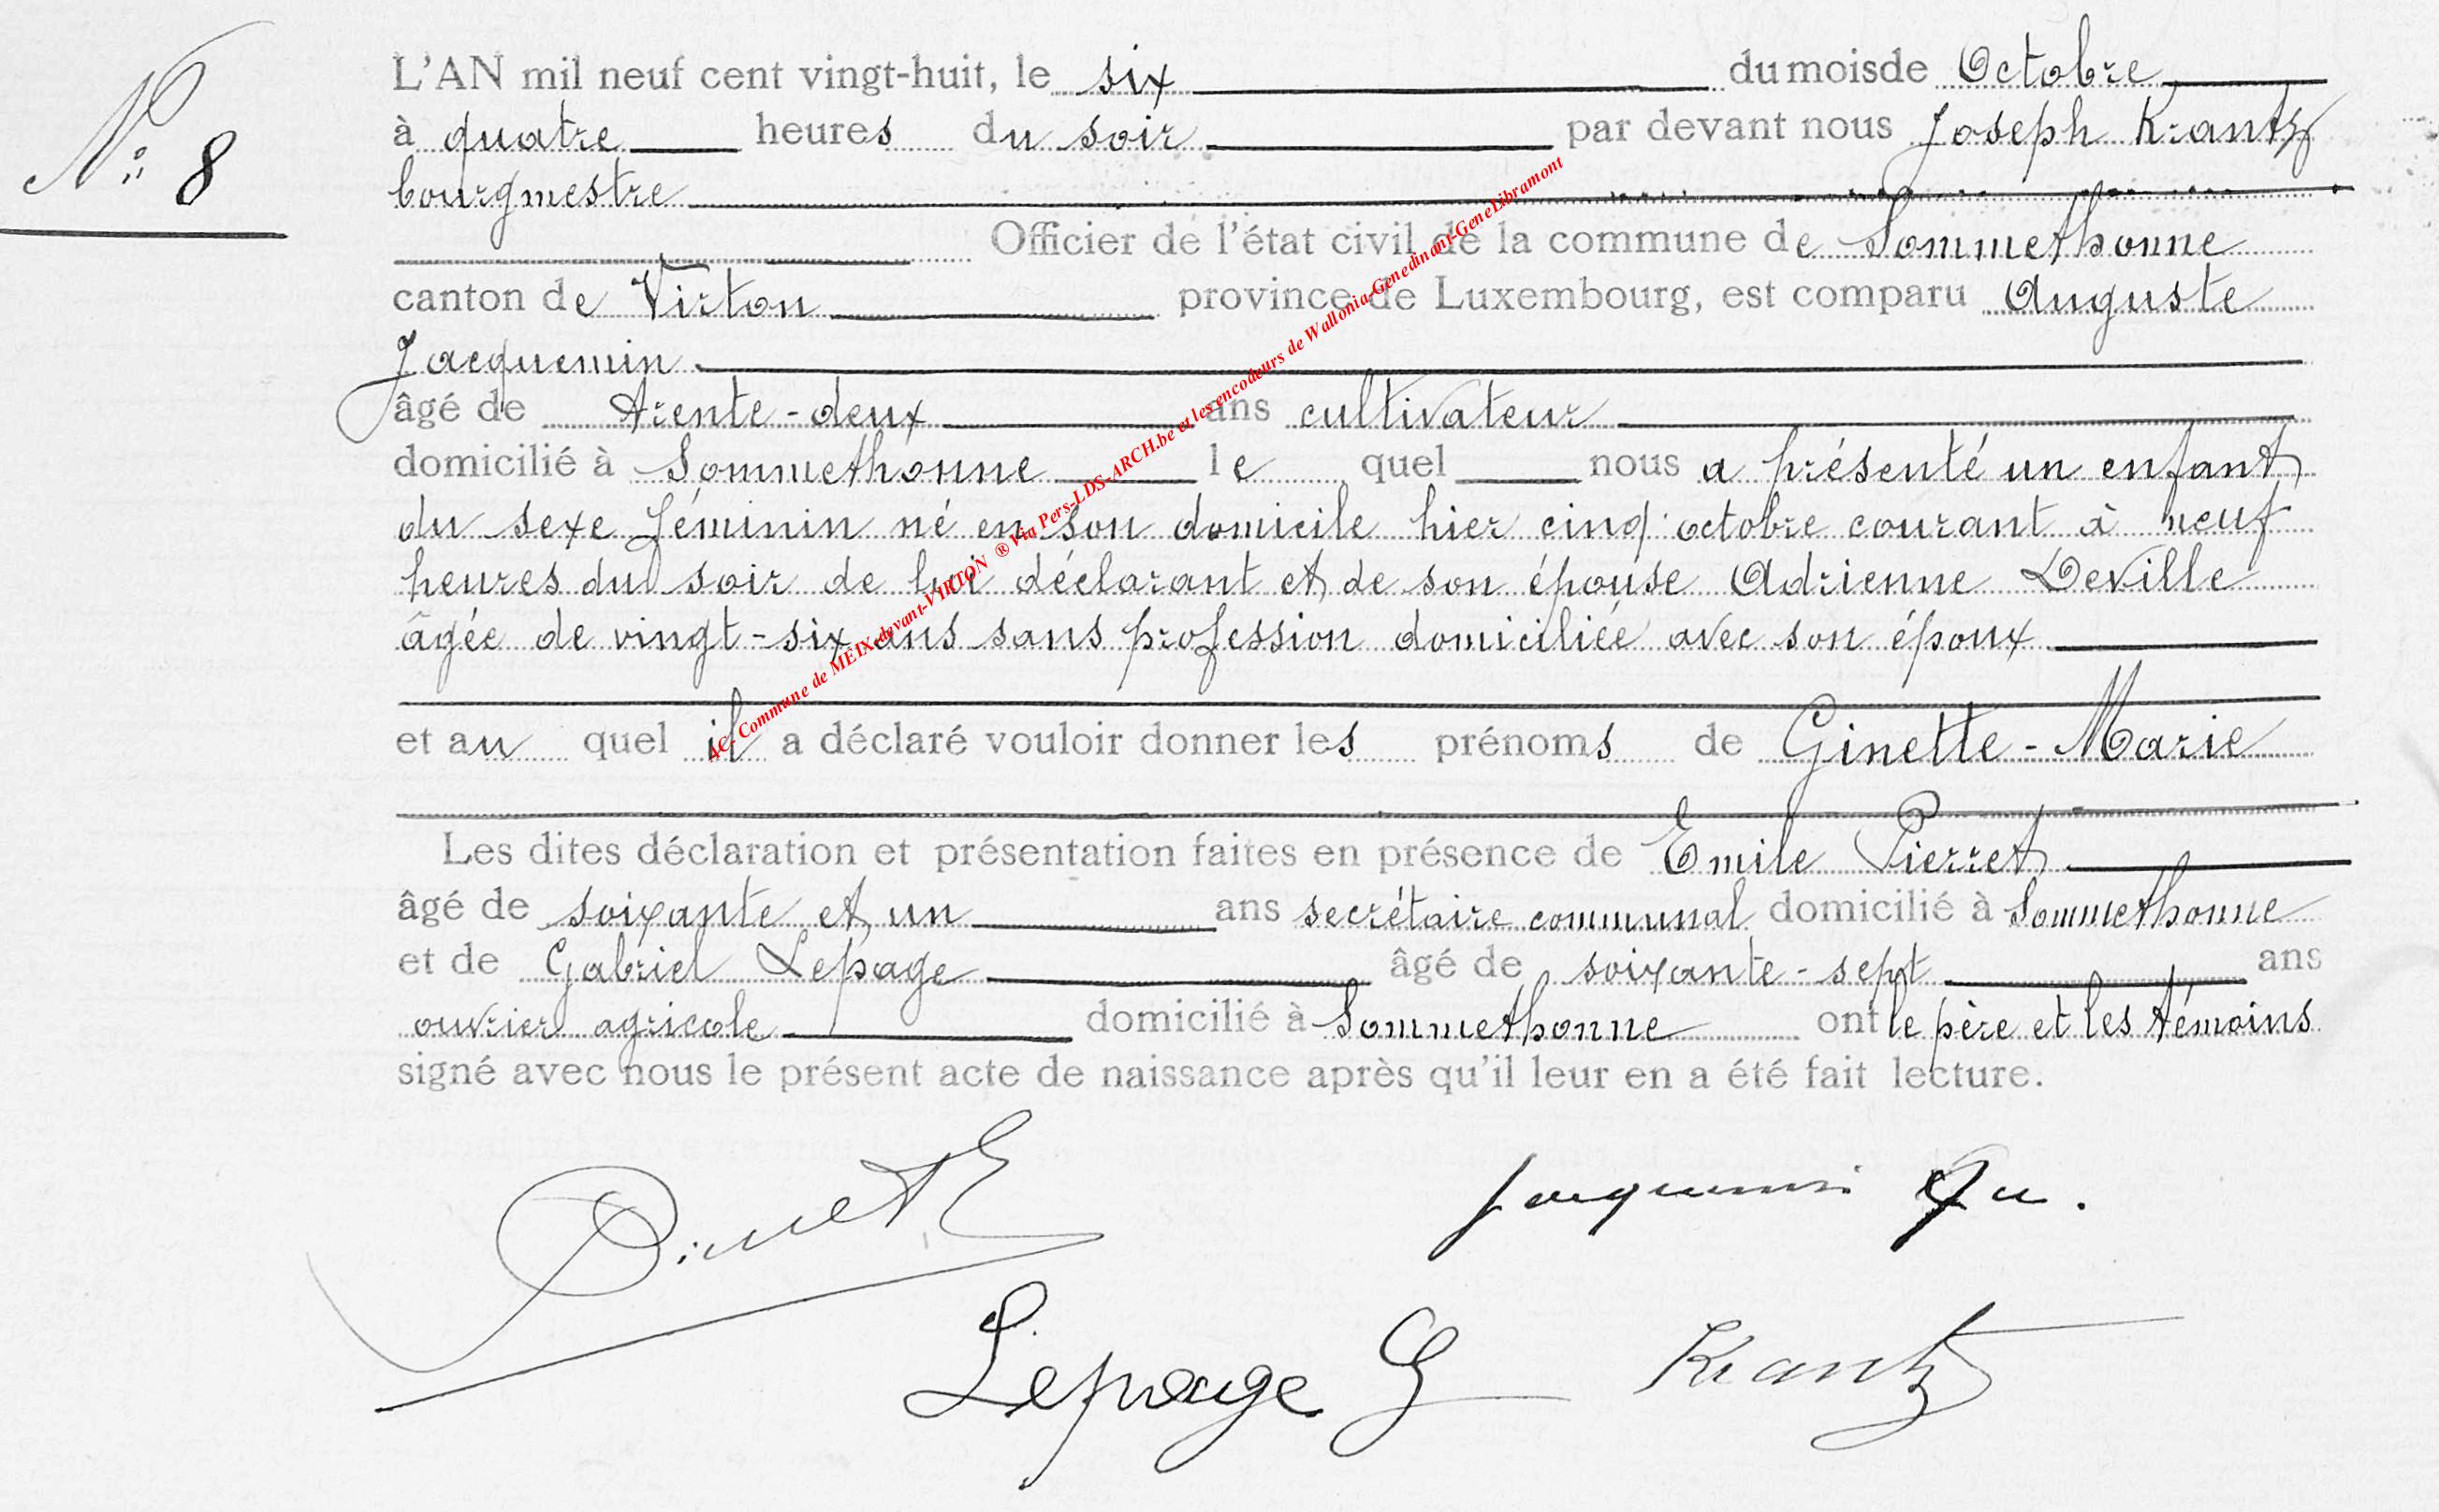 N° 8
L'AN mil neuf cent vingt-huit, le six du mois de Octobre
à quatre heures du soir par devant nous Joseph Krantz
bourgmestre
Officier de l'état civil de la commune de Sommethonne
canton de Virton province de Luxembourg, est comparu Auguste
Jacquemin
âgé de trente-deux ans cultivateur
domicilié à Sommethonne le quel nous a présenté un enfant
du sexe féminin né en son domicile hier cinq octobre courant à neuf
heures du soir de lui déclarant et de son épouse Adrienne Deville
âgée de vingt-six ans sans profession domiciliée avec son époux
et au quel il a déclaré vouloir donner les prénoms de Ginette-Marie
Les dites déclaration et présentation faites en présence de Emile Pierret
âgé de soixante et un ans secrétaire communal domicilié à Sommethonne
et de Gabriel Lepage âgé de soixante-sept ans
ouvrier agricole domicilié à Sommethonne ont le père et les témoins
signé avec nous le présent acte de naissance après qu'il leur en a été fait lecture.
Jacquemin Au.
Lepage G Krantz
4C- Commune de MEIX-devant-VIRTON ® Via Pers-LDS-ARCH.be et les encodeurs de Wallonia-Genedinant-GeneLibramont